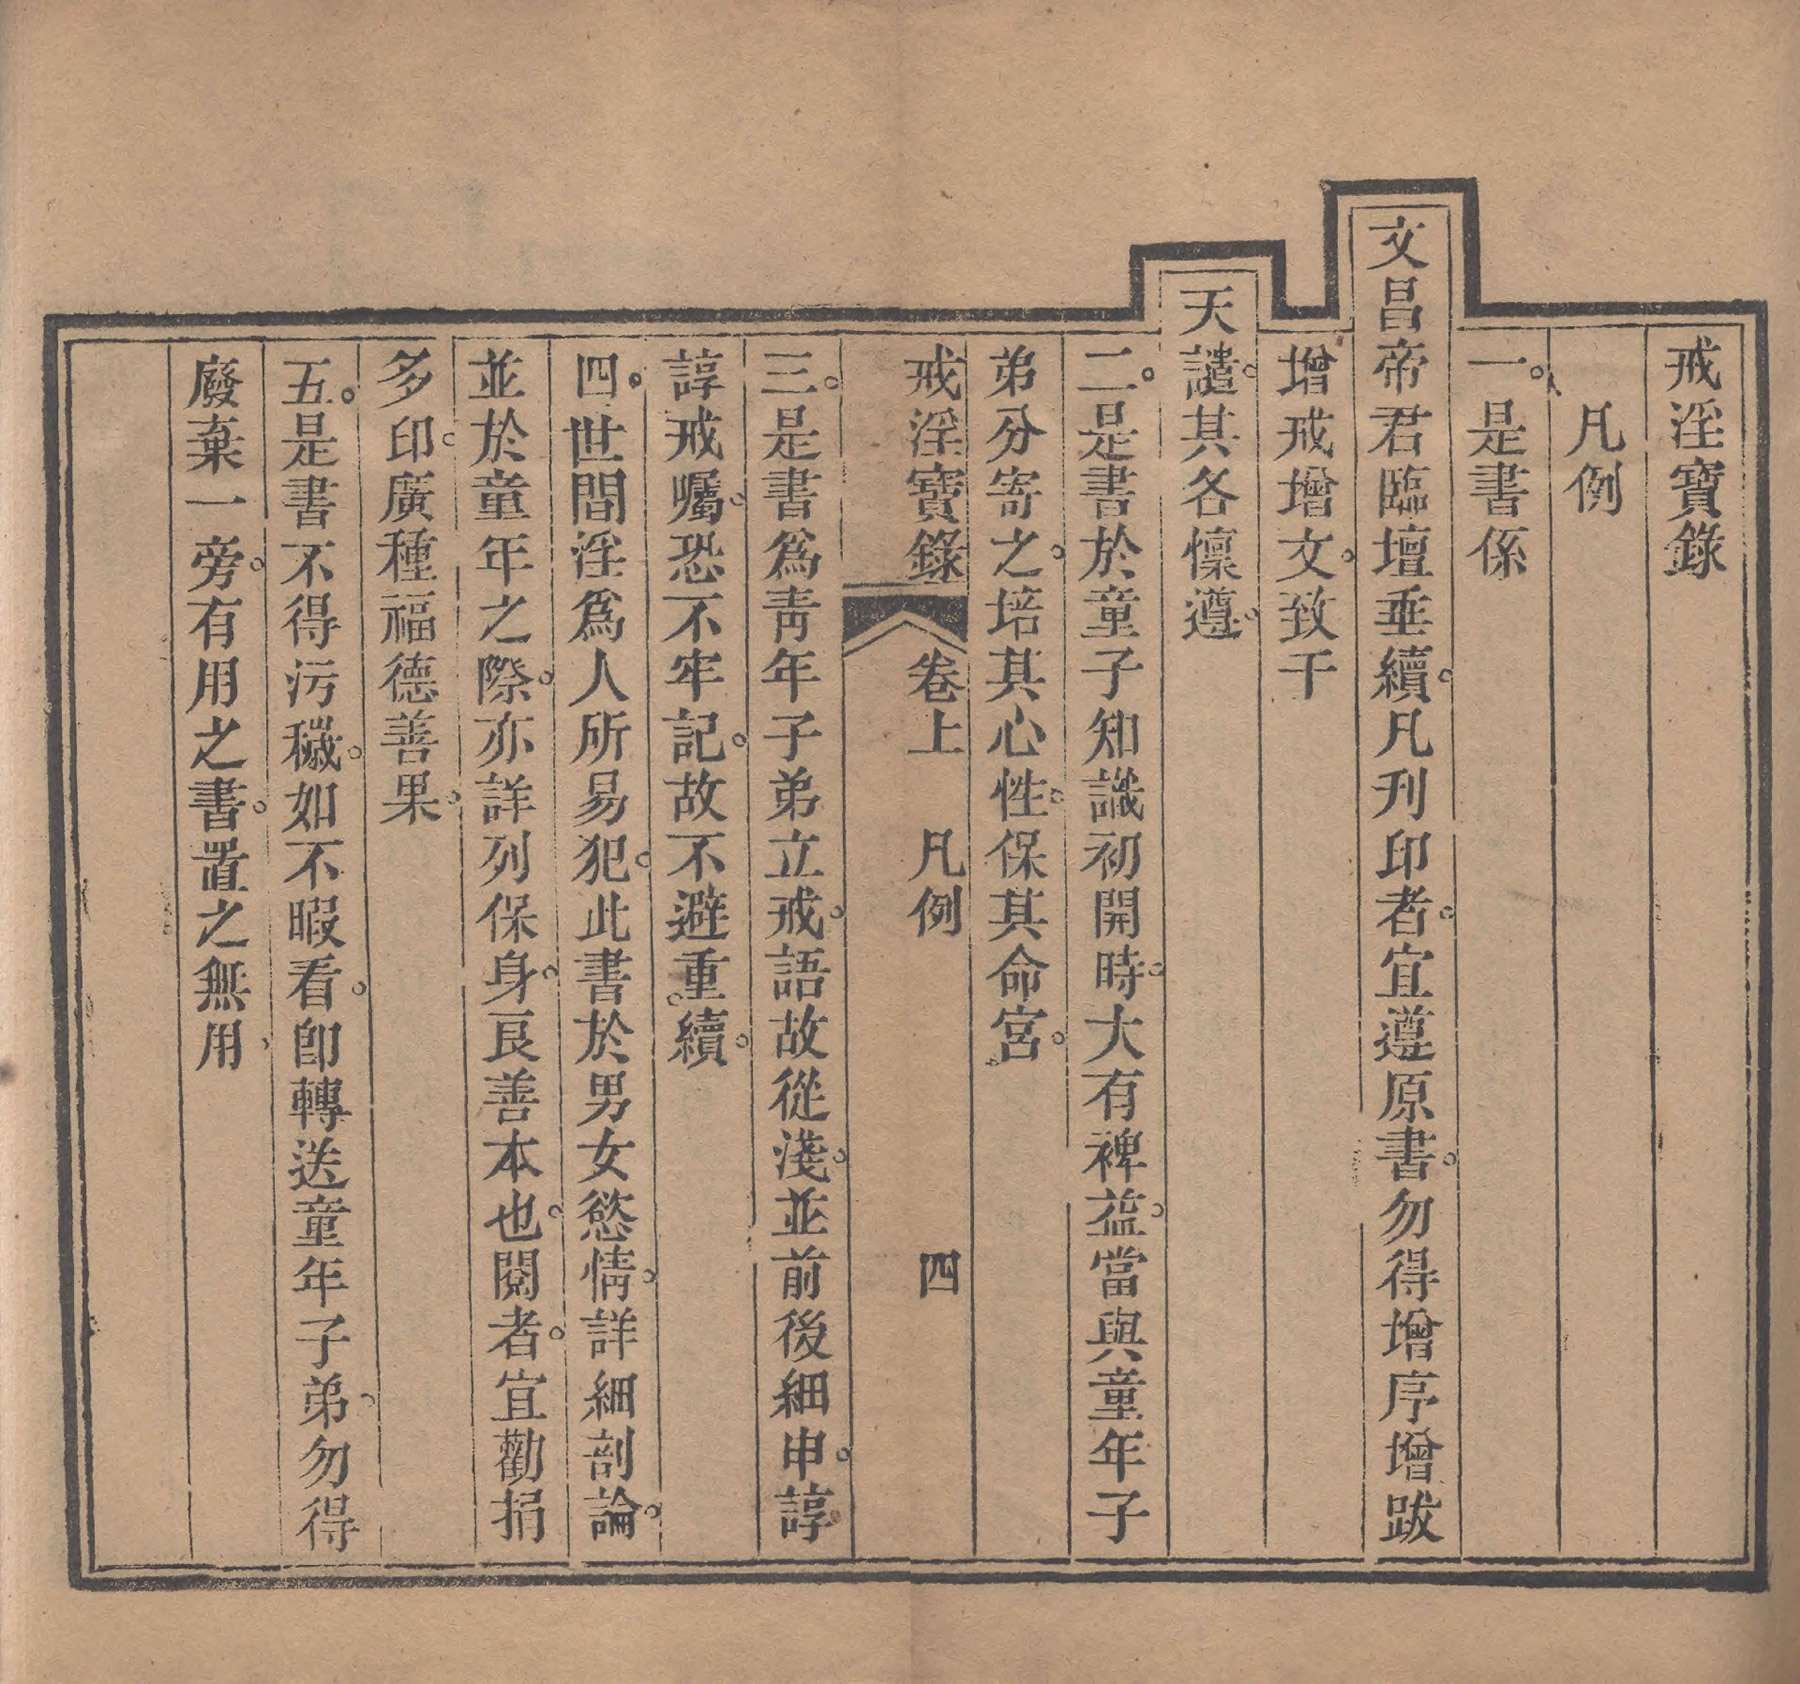 戒淫寶錄
凡例
一。是書係
文昌帝君臨壇垂續。凡刋印者。宜遵原書。勿得增序增跋
增戒增文。致干
天譴。其各懍遵。
二。是書於童子知識初開時。大有裨益。當與童年子
弟分寄之。培其心性。保其命宮。
戒淫寶錄 卷上 凡例 四
三。是書爲靑年子弟立戒。語故從淺。並前後細申。諄
諄戒囑。恐不牢記。故不避重。續。
四。世間淫爲人所易犯。此書於男女慾情。詳細剖論。
並於童年之際。亦詳列保身。良善本也。閱者。宜勸捐
多印。廣種福德善果。
五。是書不得污穢。如不暇看。卽轉送童年子弟。勿得
廢棄一旁。有用之書。置之無用、